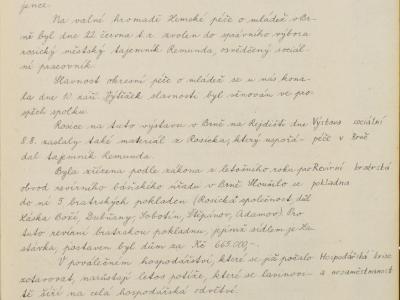 jence.
Na valné hromadě Zemské péče o mládež v Br-
ně byl dne 22. června t.r. zvolen do správního výboru
rosický městský tajemník Remunda, osvědčený sociál-
ní pracovník.
Slavnost okresní péče o mládež se u nás kona-
la dne 10. září. Výtěžek slavnosti byl věnován ve pro-
spěch spolku.
Rosice na tuto výstavu v Brně na Rejdišti dne Výstava sociální
8.8. zaslaly také materiál z Rosicka, který uspořá- péče v Brně
dal tajemník Remunda.
Byla zřízena podle zákona z letošního roku pro Revírní bratrská
obvod revírního báňského úřadu v Brně. Sloučilo se pokladna
do ní 5 bratrských pokladen (Rosická společnost, důl
Láska Boží, Dubňany, Sobotín, Štěpánov, Adamov). Pro
tuto revírní bratrskou pokladnu, jejímž sídlem je Za-
stávka, postaven byl dům za Kč 665.000,-.
V poválečném hospodářství, které se již počalo Hospodářská krise
zotavovat, narůstají letos potíže, které se lavinovi- a nezaměstnanost
tě šíří na celá hospodářská odvětví.